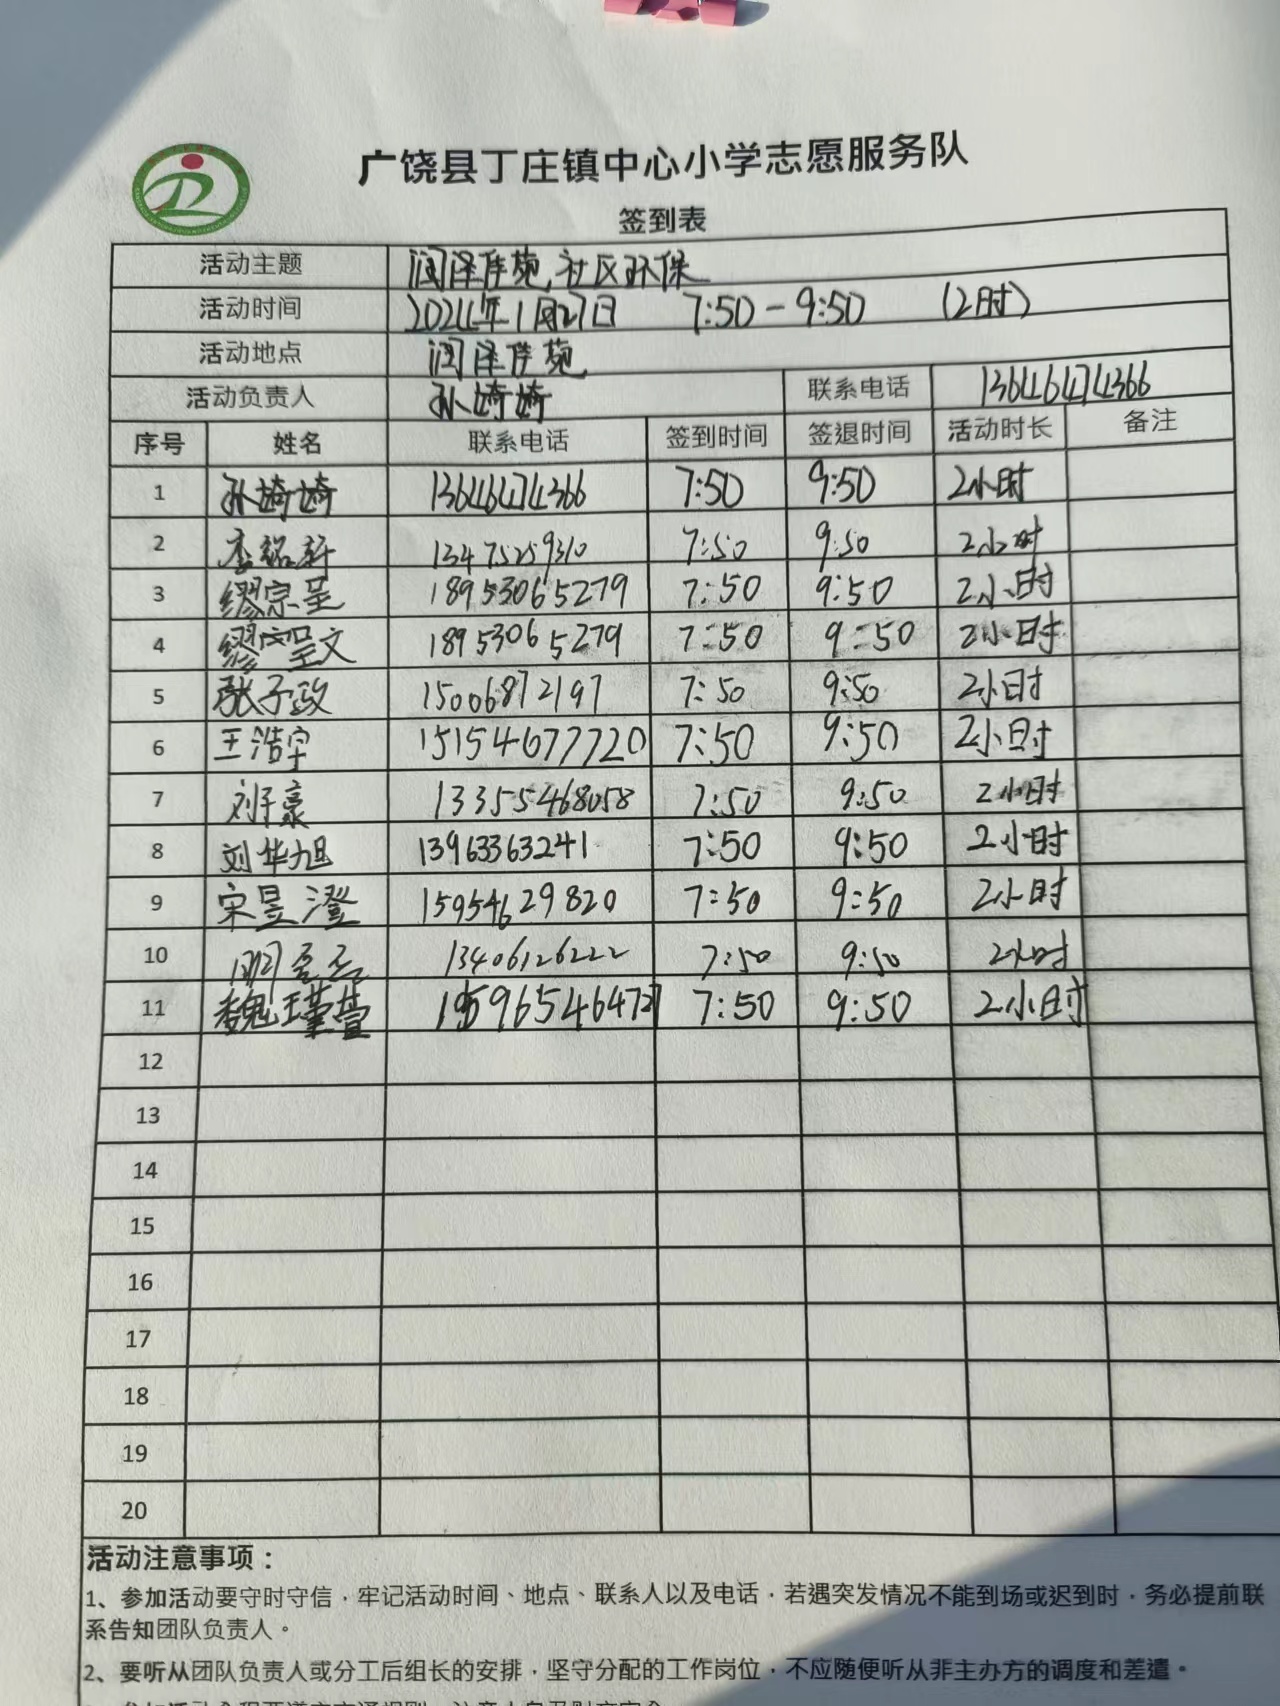 广饶县丁庄镇中心小学志愿服务队
签到表
活动主题 润泽佳苑社区环保
活动时间 2024年1月27日 7:50-9:50 (2时)
活动地点 润泽佳苑
活动负责人 孙婍婍 联系电话 13646474366
序号 姓名 联系电话 签到时间 签退时间 活动时长 备注
1 孙婍婍 13646474366 7:50 9:50 2小时
2 李铭轩 13475259310 7:50 9:50 2小时
3 缪宗呈 18953065279 7:50 9:50 2小时
4 缪呈文 18953065279 7:50 9:50 2小时
5 张子政 15006872197 7:50 9:50 2小时
6 王浩宇 15154677720 7:50 9:50 2小时
7 刘子豪 13355468058 7:50 9:50 2小时
8 刘华旭 13963363241 7:50 9:50 2小时
9 宋昱澄 15954629820 7:50 9:50 2小时
10 13406126222 7:50 9:50 2小时
11 魏瑾萱 7:50 9:50 2小时
12
13
14
15
16
17
18
19
20
活动注意事项：
1、参加活动要守时守信，牢记活动时间、地点、联系人以及电话，若遇突发情况不能到场或迟到时，务必提前联
系告知团队负责人。
2、要听从团队负责人或分工后组长的安排，坚守分配的工作岗位，不应随便听从非主办方的调度和差遣。